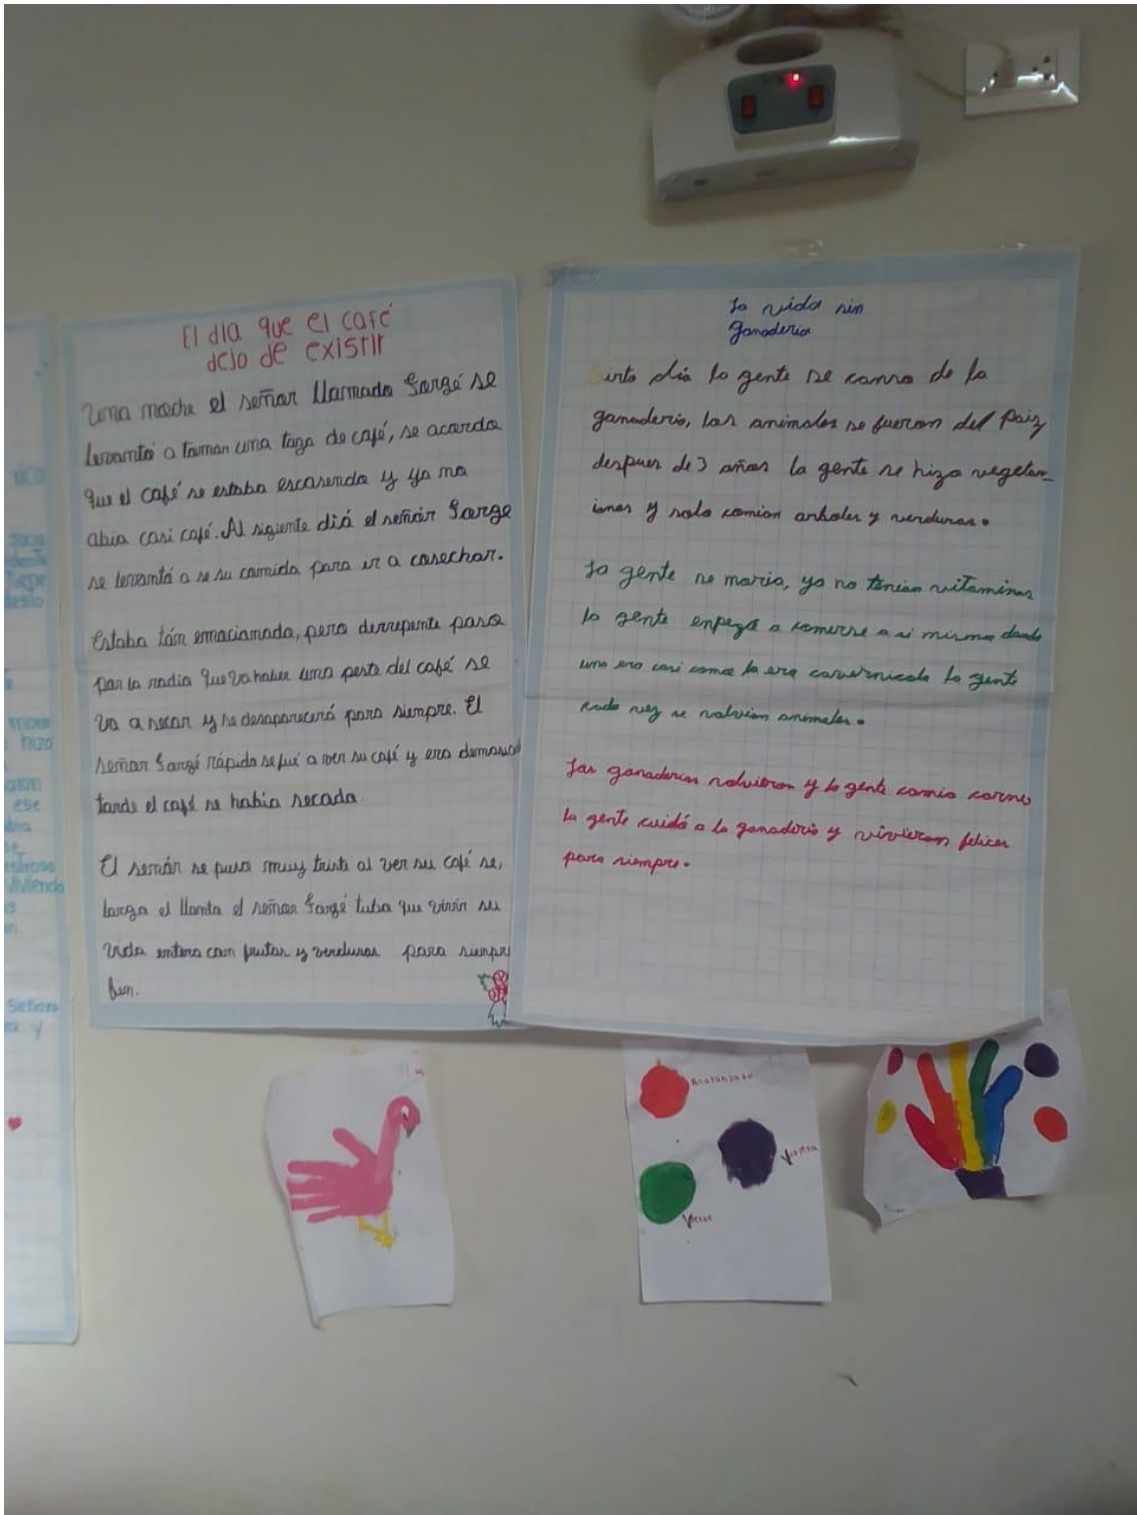 El dia que el café
dejo de existir
Una noche el señor llamado Gorgé se
levantó a tomar una taza de café, se acordo
que el café se estaba escasendo y ya no
abia casi café. Al sigiente diá el señor Gorge
se levantó a se su comida para ir a cosechar.
Estaba tán emocionado, pero derrepente paso
por la radio que va haber una peste del café se
va a secar y se desaparecerá para siempre. El
señor Gorgé rápido se fué a ver su café y era demasiad
tarde el café se habia secado.
El senór se puso muy triste al ver su café se,
largo el llanto el señor Gorgé tubo que vivir su
vida entera con frutas y verduras para siempre
fin.
La vida sin
Ganaderia
Cirto día la gente se canso de la
ganaderia, los animales se fueron del paiz
despues de 3 años la gente se hizo vegetar_
ianos y solo comian arboles y verduras.
La gente se moria, ya no tenian vitaminas
la gente enpezo a comerse a si misma dando
una era casi como la era cavernicola la gente
cada vez se volvian animales.
Las ganaderias volvieron y la gente comio carne
la gente cuidó a la ganaderia y vivieron felices
para siempre.
Anaranjado
Violeta
Verde
RICO
hizo
ese
viviendo
Señora
y